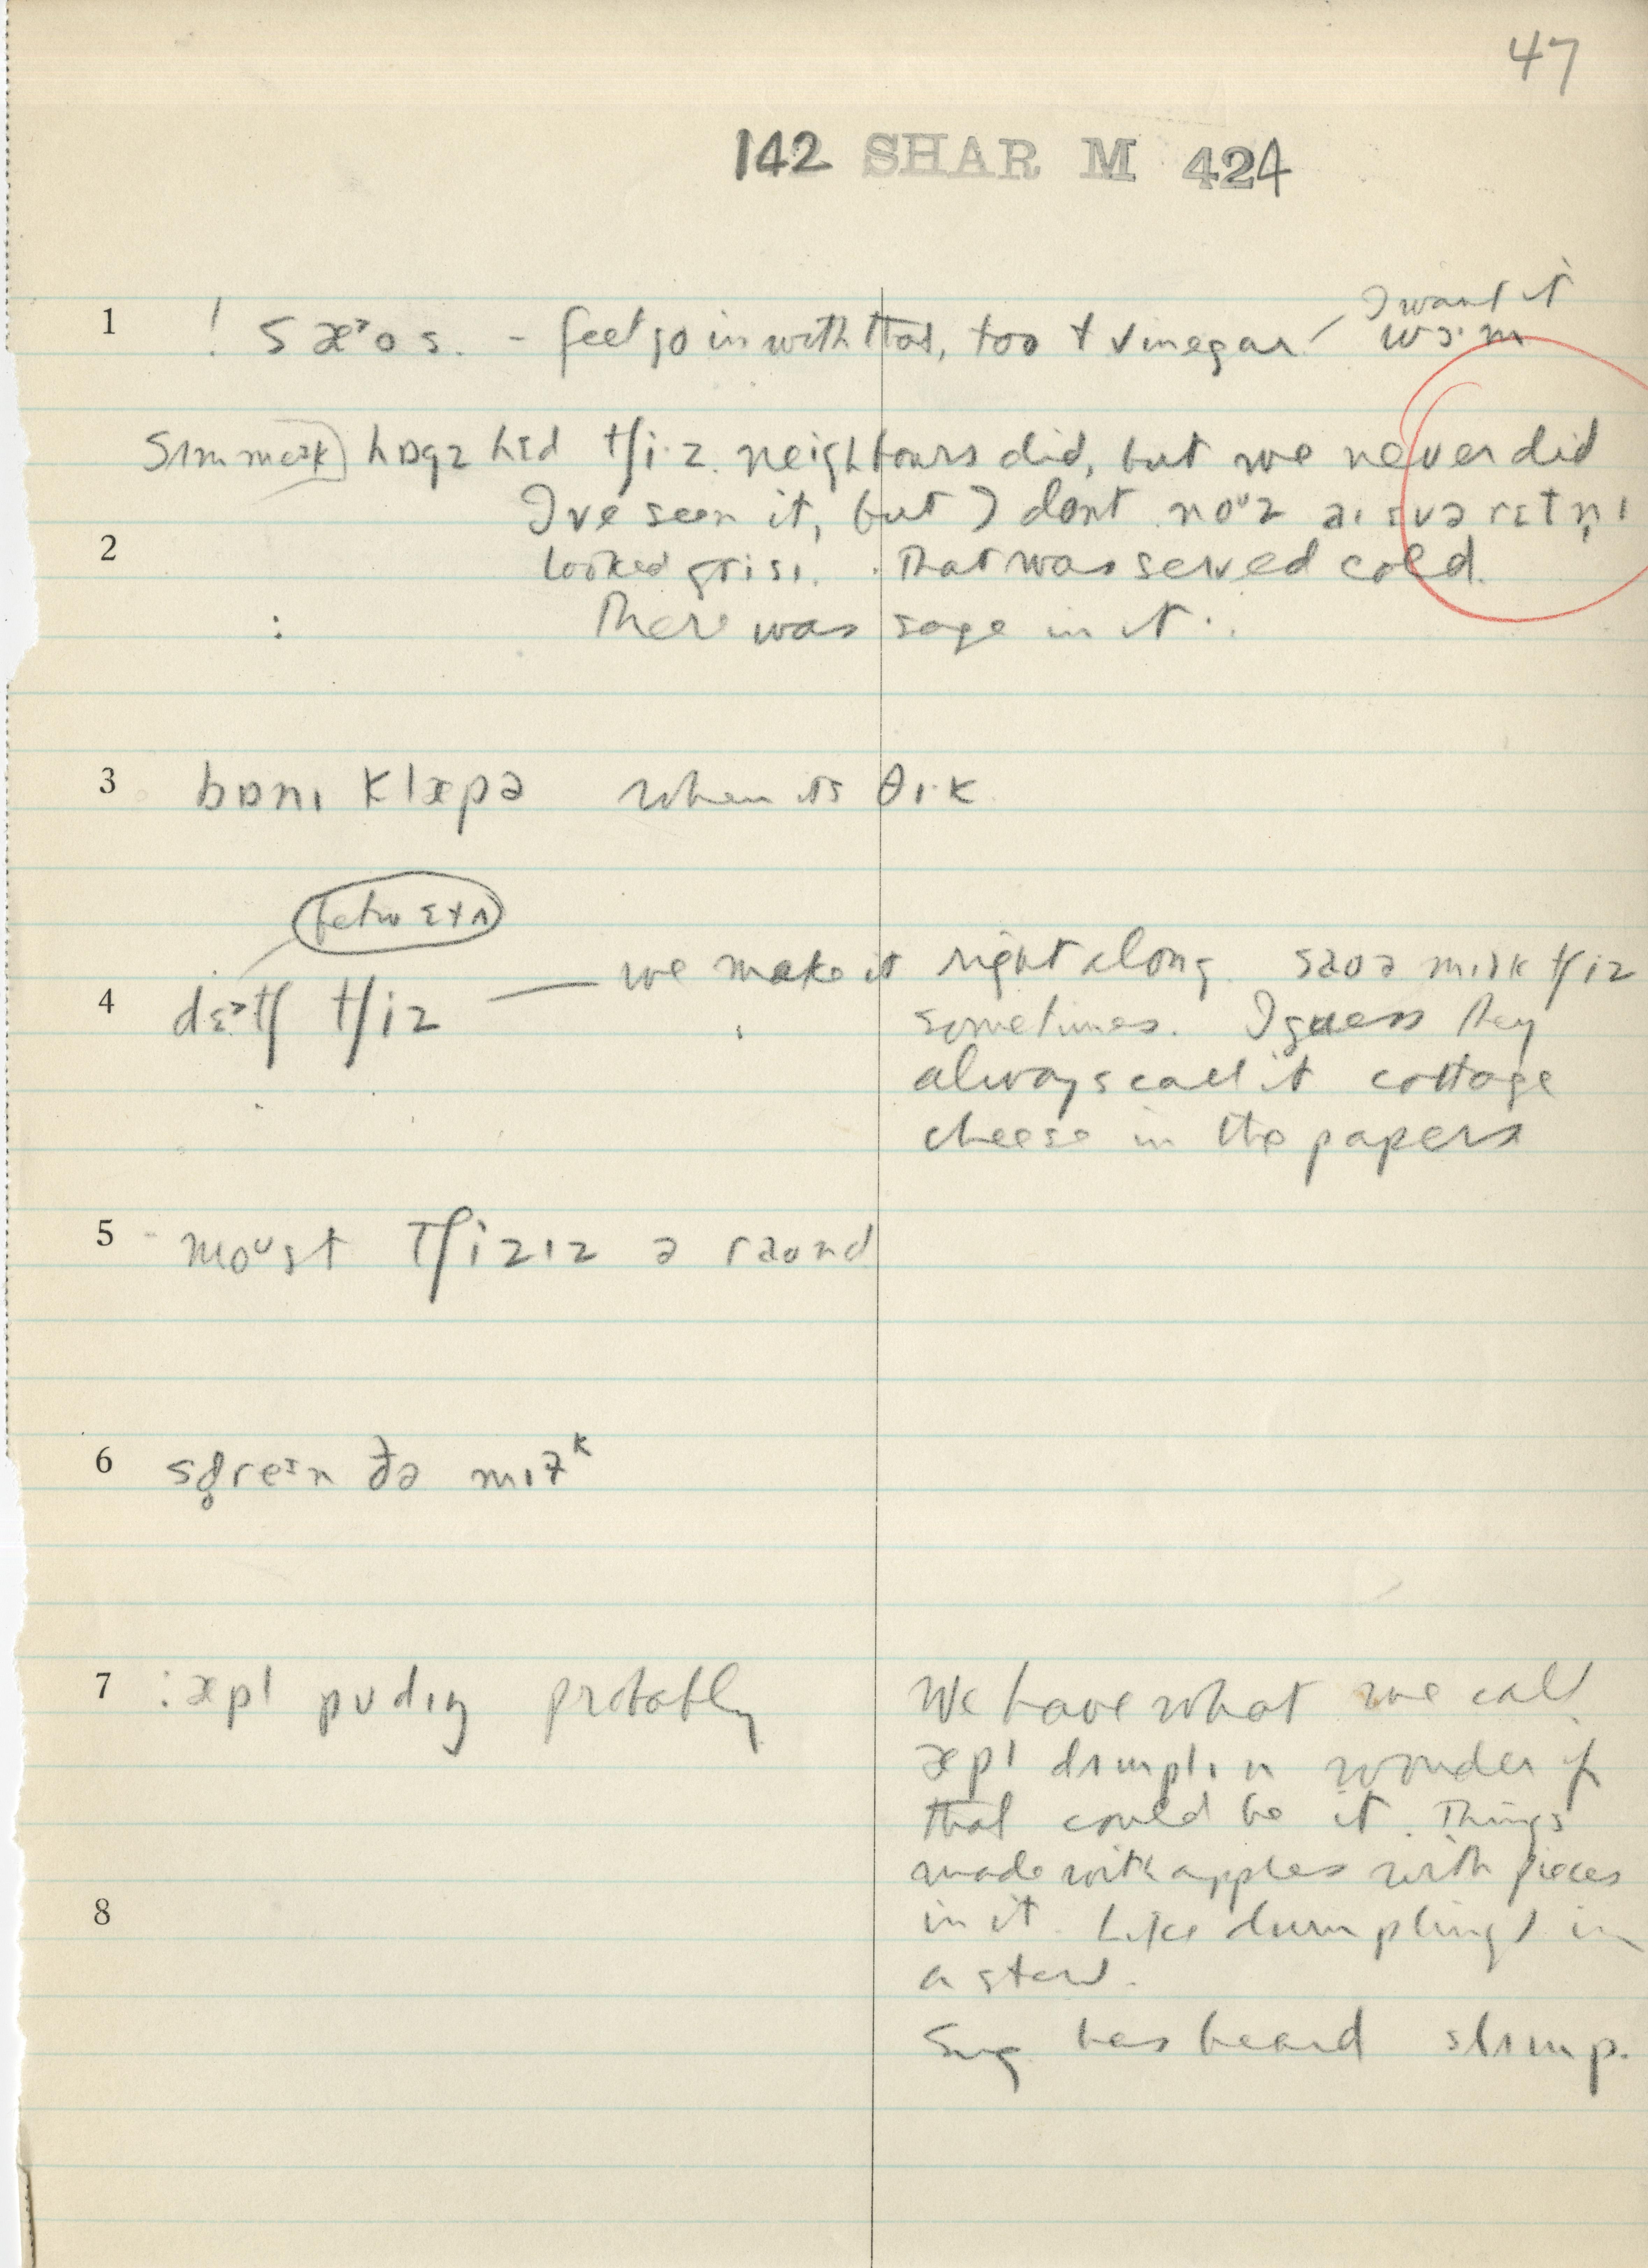 47
142 SHAR M 424
I want it
1 ! sæᵊos. - feet go in with that, too + vinegar wɔ·m
hɒgz hɛd tʃi·z. neighbours did, but we never did
I've seen it, but I dont noᵘz aɪ ɛvə
2 looked grisɪ. That was served cold.
: There was sage in it.
3 bɒnɪ klæpə when its θɪ·k
4 dɛᵊtʃ tʃiz — we make it right along saoə mɪlk tʃiz
sometimes. I guess they
always call it cottage
cheese in the papers
5 moᵘst tʃizɪz ə raond
6 ðə mɪɫᵏ
7 : æpl pudɪŋ probably We have what we call
æpl dʌmplɪn wonder if
that could be it. Things
made with apples with pieces
8 in it. Like dumplings in
a stew.
has heard slʌmp.